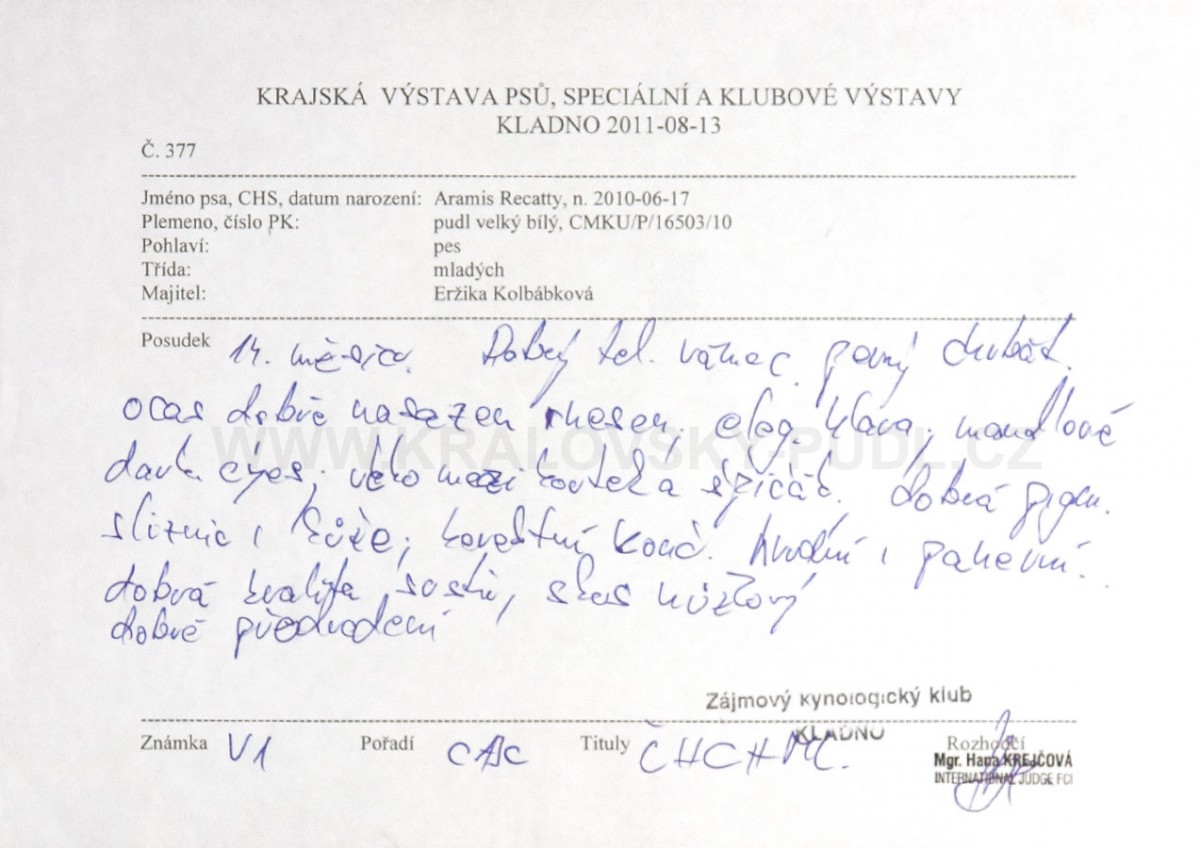 KRAJSKÁ VÝSTAVA PSŮ, SPECIÁLNÍ A KLUBOVÉ VÝSTAVY
KLADNO 2011-08-13
Č. 377
Jméno psa, CHS, datum narození: Aramis Recatty, n. 2010-06-17
Plemeno, číslo PK: pudl velký bílý, CMKU/P/16503/10
Pohlaví: pes
Třída: mladých
Majitel: Eržika Kolbábková
Posudek 14. měsíců. Dobrý těl. rámec, pevný hřbet.
ocas dobře nasazen i nesen, eleg. hlava, mandlové
WWW.KRALOVSKY-PUDL.CZ
dark eyes, dobrá pigm.
sliznic i kůže, korektní konč. hrudní i pánevní.
dobrá kvalita srsti, skus nůžkový
dobré předvedení
Zájmový kynologický klub
KLADNO
Známka V1 Pořadí CAC Tituly ČHCHML. Rozhodčí
Mgr. Hana KREJČOVÁ
INTERNATIONAL JUDGE FCI